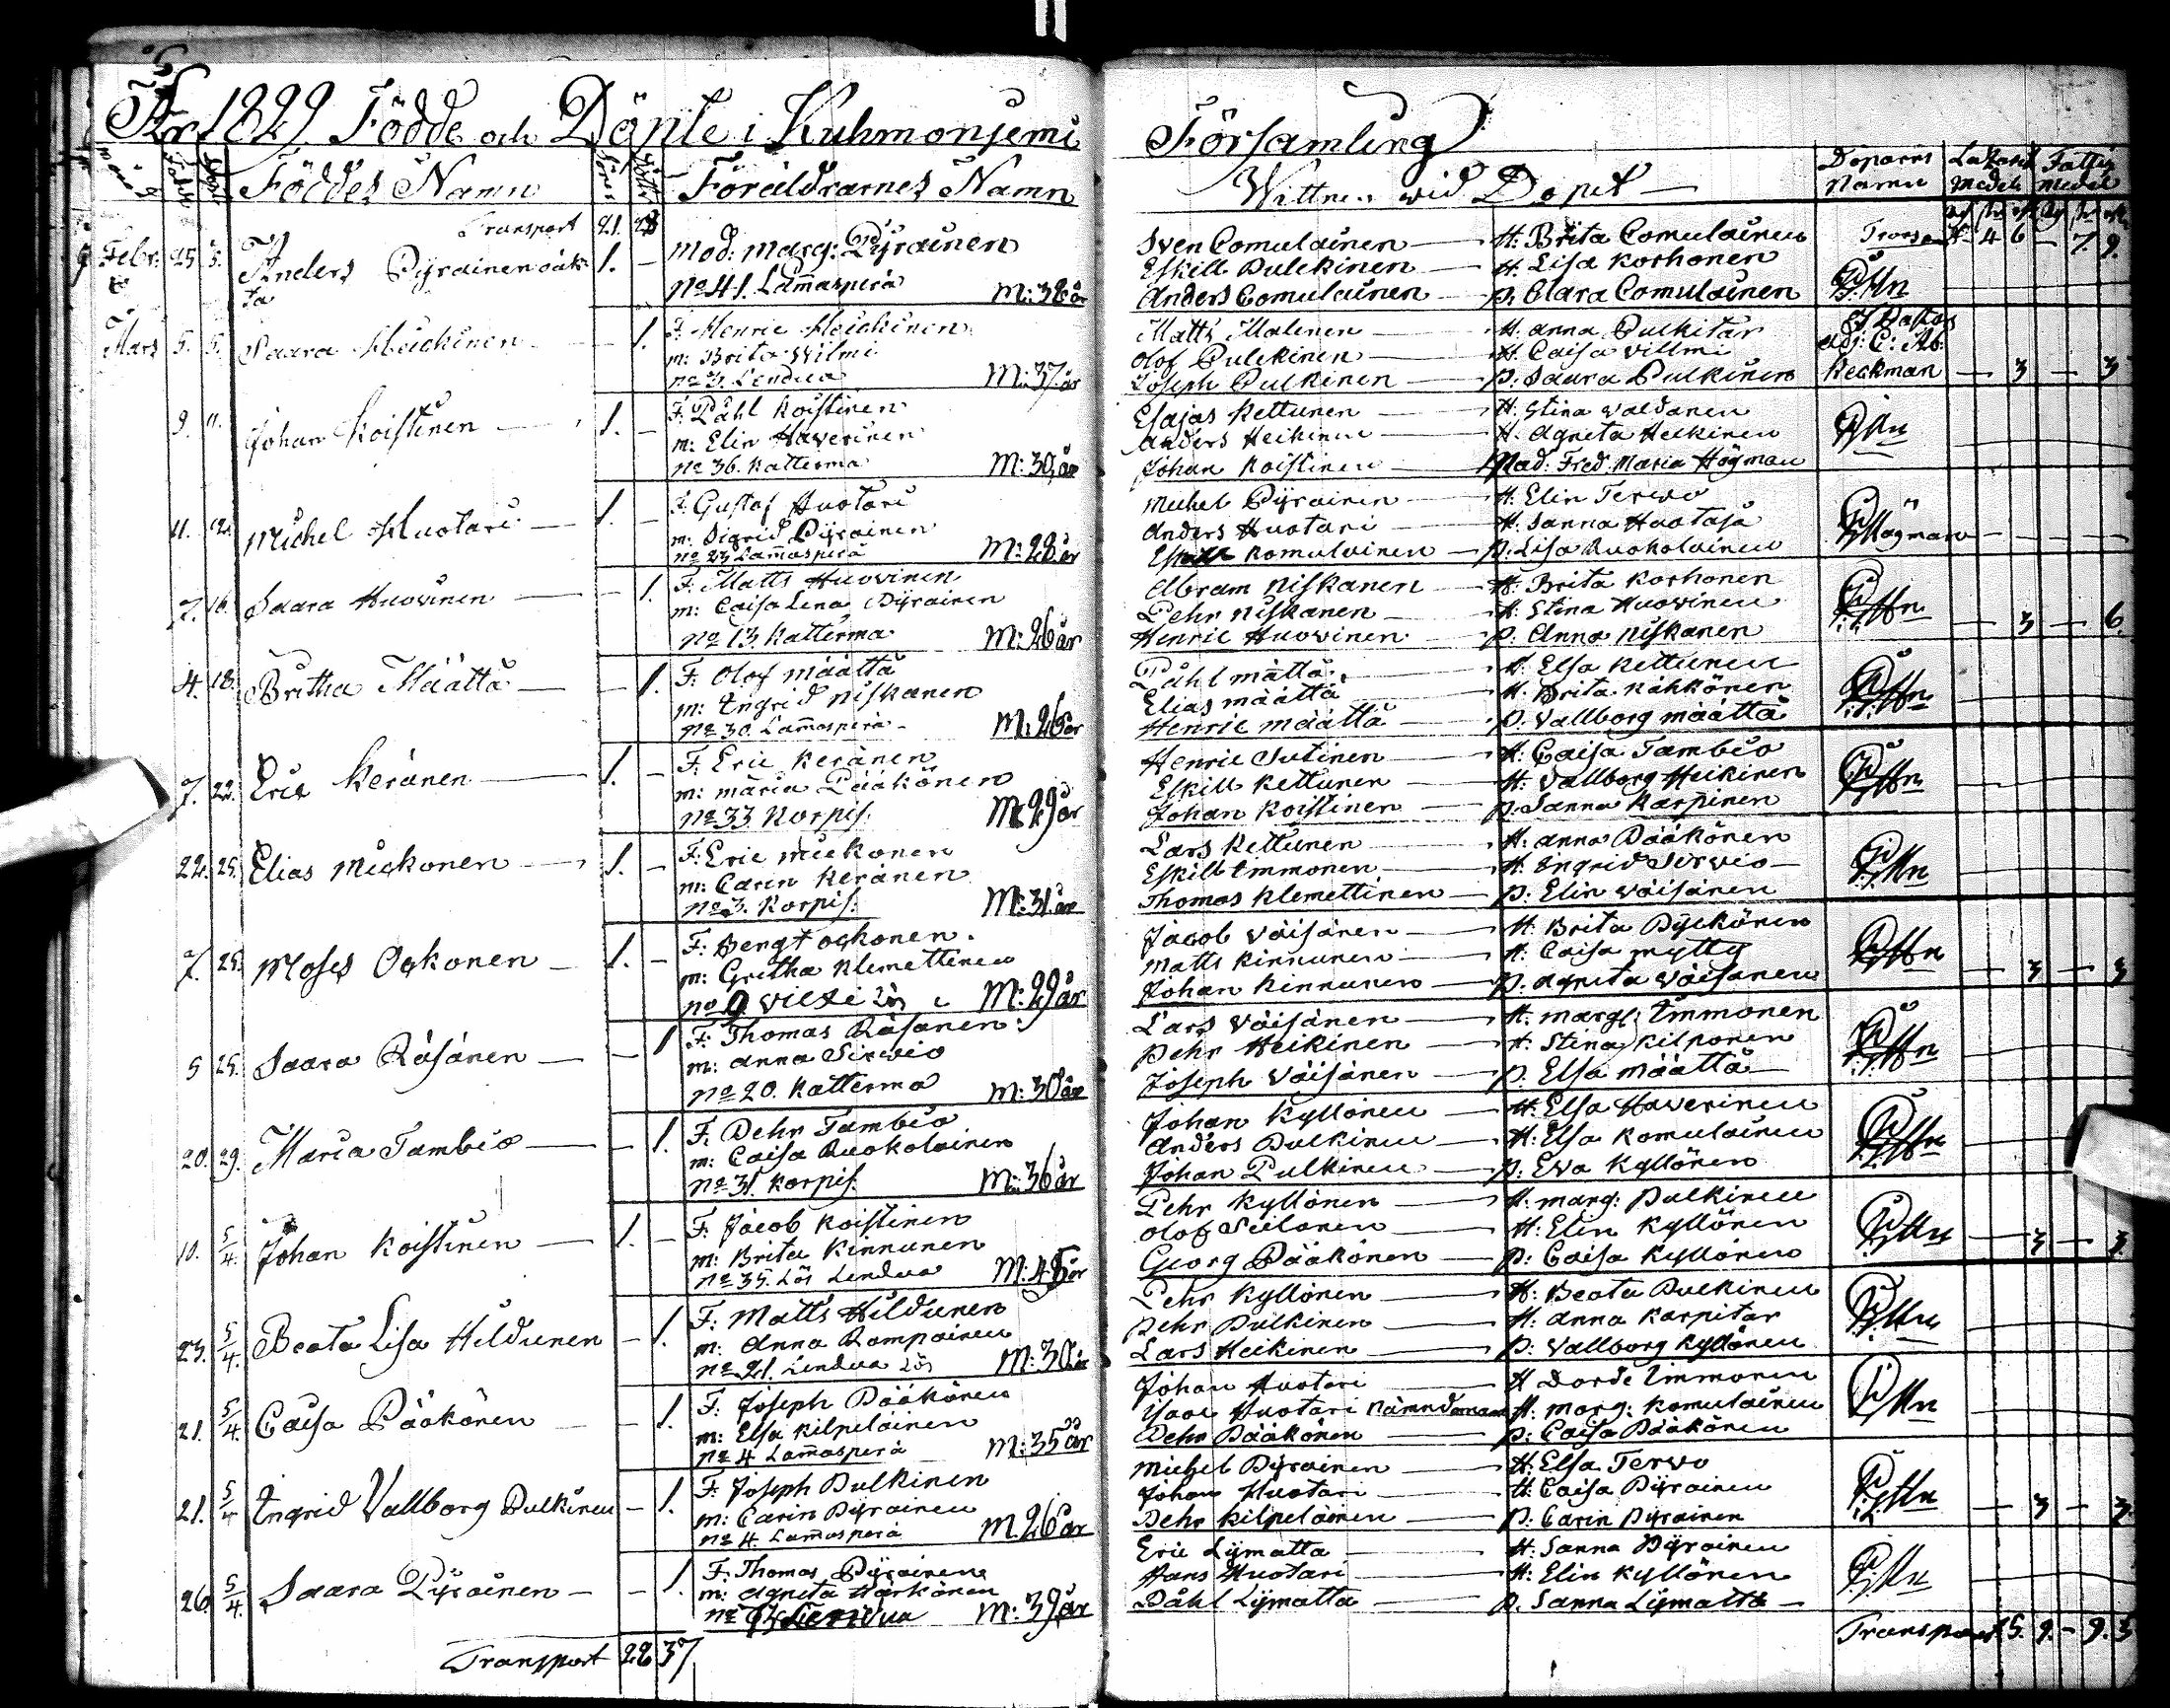 År 1829 Födde och Döpte i Kuhmoniemi Församling
Föddes Namn
Föräldrarnes Namn
Wittnen wid Dopet
Döparns Namn
Medel
Fattig Medel
Transport 21. 28
Febr. 25 Anders Pyrainen oäkta 1. —
Mod: Marg: Pyrainen
No 41. Lam̄asperä M: 38 år
Sven Comulainen — H: Brita Comulainen
Eskill Pulckinen — H. Lisa Korhonen
Anders Comulainen — p. Clara Comulainen
4 6 — 7. 9.
Mars 5. 5. Saara Heickinen — 1.
F. Henric Heickinen
m: Brita Wilmi
No 3. Lendua M: 37 år
Matts Malinen — H. Anna Pulkitar
Olof Pulckinen — H. Caisa Villmi
Joseph Pulkinen — p. Saara Pulkinen
Heckman — 3 — 3
9. 11. Johan Koistinen — 1. —
F. Påhl Koistinen
m: Elin Haverinen
No 36. Katterma M: 30 år
Esajas Kettunen — H. Stina Waldanen
Anders Heikinen — H. Agneta Heikinen
Johan Koistinen — Mad: Fred. Maria Högman
11. 12. Michel Huotari — 1. —
F. Gustaf Huotari
m. Sigrid Pyrainen
No 23 Lam̄asperä M: 28. år
Michel Pyrainen — H. Elin Terwo
Anders Huotari — H. Sanna Huotasa
Eskill Komulainen — p. Lisa Ruokolainen
Högman
7. 16. Saara Huovinen — 1.
F. Matts Huovinen
m: Caisa Lena Pyrainen
No 13. Katterma M: 26 år
Abram Niskanen — H: Brita Korhonen
Pehr Niskanen — H. Stina Huovinen
Henric Huovinen — p. Anna Niskanen
— 3 — 6.
4. 18. Britha Määttä — 1.
F. Olof Määttä
m: Ingrid Niskanen
No 30. Lam̄asperä M: 26 år
Påhl Mättä — H. Elsa Kettunen
Elias Määttä — H. Brita Kähkönen
Henric Määttä — p. Vallborg Määttä
7. 22. Eric Keränen — 1. —
F. Eric Keränen
m: Maria Pääkönen
No 33 Korpis. M: 29 år
Henric Sutinen — H. Caisa Tambio
Eskill Kettunen — H. Vallborg Heikinen
Johan Koistinen — p. Sanna Karpinen
22. 25. Elias Mickonen — 1. —
F. Eric Mickonen
m: Carin Keränen
No 3. Korpis. M: 31 år
Lars Kettunen — H. Anna Pääkönen
Eskill Immonen — H. Ingrid Servio
Thomas Klemettinen — p. Elin Väisänen
7. 25. Moses Ockonen — 1. —
F: Bengt Ockonen.
m: Gretha Klemettinen
M: 29 år
Jacob Väisänen — H. Brita Pyckönen
Matts Kinnunen — H. Caisa Mytty
Johan Kinnunen — p. Agneta Väisänen
— 3 — 3
5 25. Saara Räsänen — 1
F. Thomas Räsanen.
m: Anna Sirwio
No 20. Katterma M: 30 år
Lars Väisänen — H. Marg: Immonen
Pehr Heikinen — H. Stina Kilponen
Joseph Väisänen — p. Elsa Määttä
20. 29. Maria Tambio — 1.
F. Pehr Tambio
m: Caisa Ruokolainen
No 31. Korpis. M: 36 år
Johan Kyllönen — H. Elsa Haverinen
Anders Pulkinen — H: Elsa Komulainen
Johan Pulkinen — p: Ewa Kyllönen
10. 5/4. Johan Koistinen — 1. —
F. Jacob Koistinen
m: Brita Kinnunen
No 35. Lös Lendua M: 45 år
Pehr Kyllönen — H. Marg: Pulkinen
Olof Siilanen — H: Elin Kyllönen
Georg Pääkönen — p: Caisa Kyllönen
— 3 — 3.
23. 5/4. Beata Lisa Hildunen — 1.
F: Matts Hildunen
m: Anna Rompainen
No 21. Lendua Lös M: 30 år
Pehr Kyllönen — H: Beata Pulkinen
Pehr Pulkinen — H. Anna Karpitar
Lars Heikinen — p: Vallborg Kyllönen
21. 5/4. Caisa Pääkönen — 1.
F. Joseph Pääkönen
m: Elsa Kilpeläinen
No 4 Lam̄asperä M: 35 år
Johan Huotari — H Dorde Immonen
Isac Huotari Nämndeman H. Marg: Komulainen
Pehr Pääkönen — p: Caisa Pääkönen
21. 5/4 Ingrid Vallborg Pulkinen — 1.
F. Joseph Pulkinen
m: Carin Pyrainen
No 4. Lam̄asperä M. 26 år
Michel Pyrainen — H: Elsa Terwo
Johan Huotari — H: Caisa Pyrainen
Pehr Kilpeläinen — p. Carin Pyrainen
— 3 — 3.
26. 5/4. Saara Pyrainen — 1.
F. Thomas Pyrainen
m: Agneta Härkönen
Lendua M: 39 år
Eric Lymatta — H: Sanna Pyrainen
Hans Huotari — H: Elin Kyllönen
Påhl Lymatta — p. Sanna Lymatta
Transport 28 37
Transport 5. 9. — 9. 3